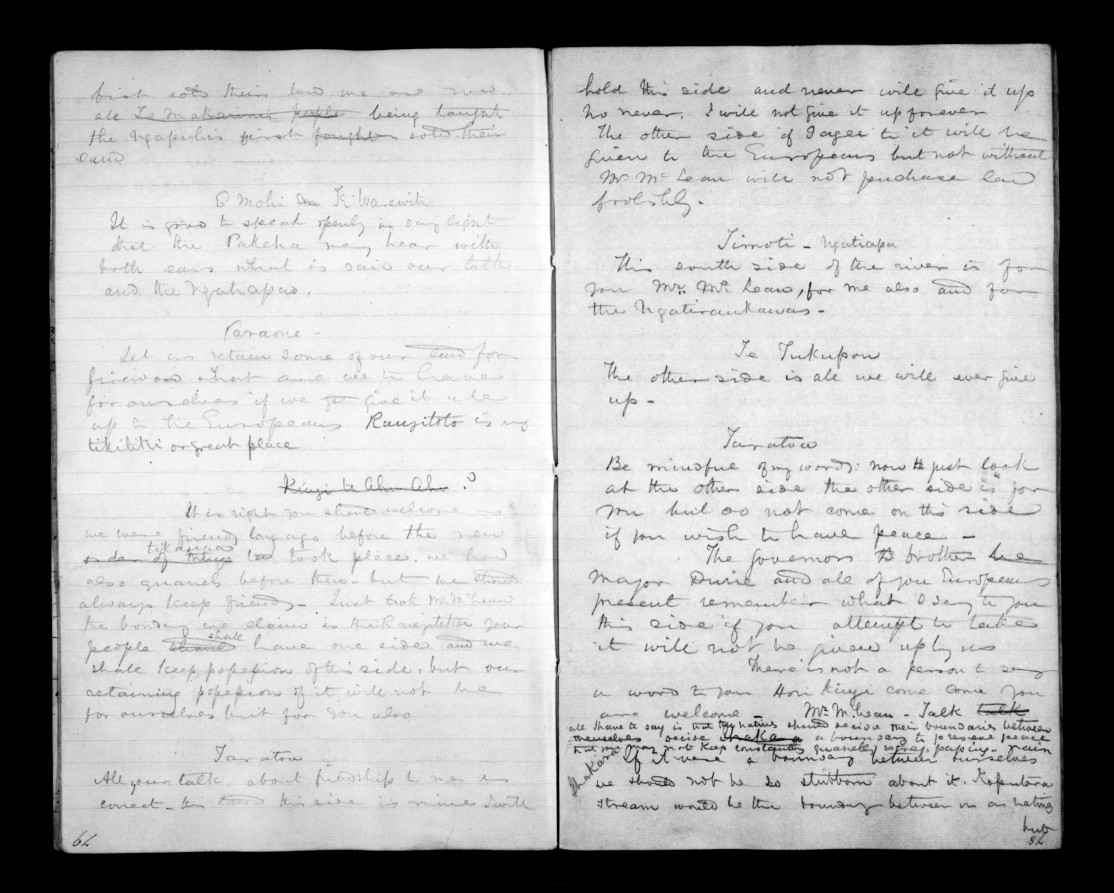 first sold their land we are now
all Te Makarinis people being taught
the Ngapuhis first fought sold their
land
E Mohi
It is good to speak openly in day light
that the Pakeha may hear with
both ears what is said our talk
and the Ngatiapas.
Paraone -
Let us retain some of our land for
firewood what are we to have
for ourselves if we give it all
up to the Europeans Rangitoto is my
tikitiki or great place
Kingi te Ahu Ahu ?
It is right you should welcome us
we were friends long ago before the new
tikanga
order of things took place. we had
also quarrels before this - but we should
always keep friends - Just look Mr McLean
the boundary we claim is the Rangitikei your
shall
people should have one side and we
shall keep possession of this side, but our
retaining possession of it will not be
for ourselves but for you also
Taratoa
All your talk about friendship to me is
correct - this side is mine I will
64
hold this side and never will give it up
no never, I will not give it up forever
The other side if I agree to it will be
given to the Europeans but not without
Mr McLean will not puchase land
foolishly.
Timoti - Ngatiapa
This south side of the river is for
you Mr. McLean, for me also and for
the Ngatiraukawas -
Te Tukupou
The other side is all we will ever give
up -
Taratoa
Be mindful of my words: now just look
at the other side the other side is for
you but do not come on this side
if you wish to have peace -
The Governors brother
Major Durie and all of you Europeans
present remember what I say to you
this side if you attempt to take
it will not be given up by us
There is not a person to say
a word to you Hori Kingi come come you
are welcome - Mr McLean - Talk talk
all I have to say is that the natives should decide their boundaries between
themselves decide make a a boundary to preserve peace
that you may not keep constantly quarelling
If it were a boundary between ourselves
we should not be so stubborn about it.
stream would be the boundary between us as natives
but